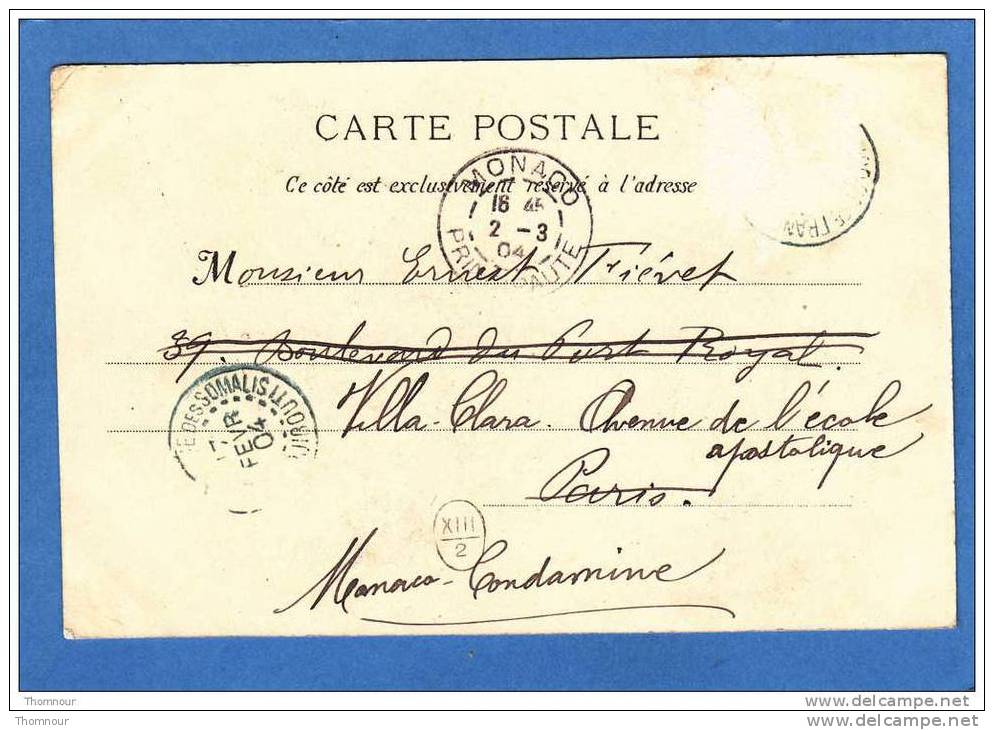 CARTE POSTALE
Ce côté est exclusivement réservé à l'adresse
MONACO
16 45
2 - 3
04
Monsieur Ernest Fiévet
39. Boulevard du Port Royal.
Villa Clara. Avenue de l'école
apostolique
Paris.
DES SOMALIS
FEVR
04
XIII
2
Monaco-Condamine
Thomnour
Thomnour
www.delcampe.net
www.delcampe.net